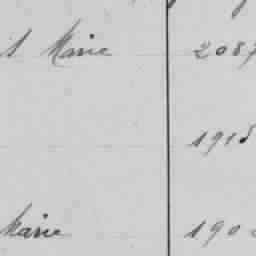 Marie 2087
1915
Marie 190